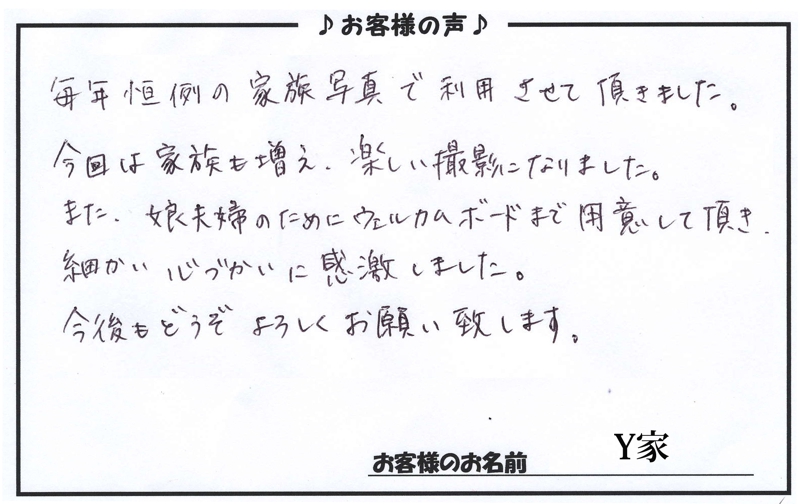 ♪お客様の声♪
毎年恒例の家族写真で利用させて頂きました。
今回は家族も増え、楽しい撮影になりました。
また、娘夫婦のためにウェルカムボードまで用意して頂き、
細かい心づかいに感激しました。
今後もどうぞよろしくお願い致します。
お客様のお名前 Y家